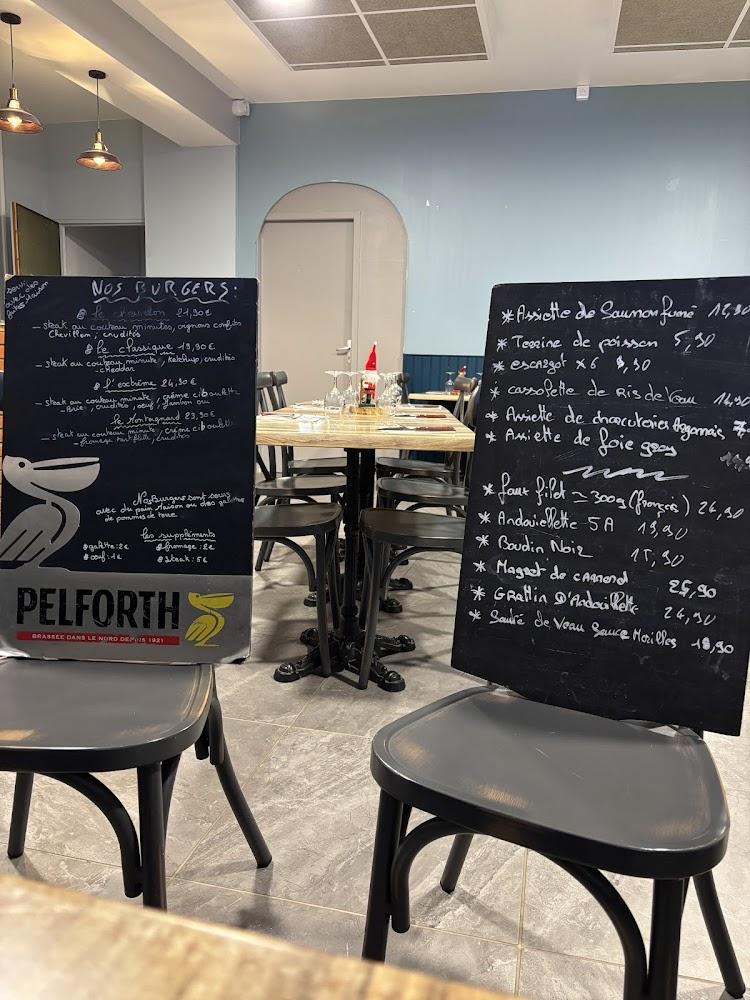 servi
avec des
frites maison
NOS BURGERS:
Le chardon 21,90€
- steak au couteau minutes, oignons confits
Chevillon, crudités
Le classique 19,90€
- steak au couteau minute, Ketchup, crudités
- cheddar
L'extrême 24,90€
- steak au couteau minute, crème ciboulette
- Brie, crudités, oeuf, jambon cru
Le Montagnard 23,90€
- steak au couteau minute, crème ciboulette
- fromage tartiflette, crudités
Nos Burgers sont servis
avec du pain maison ou des galettes
de pommes de terre.
les suppléments
galette: 2€ fromage: 2€
oeuf: 1€ steak: 5€
PELFORTH
BRASSÉE DANS LE NORD DEPUIS 1921
* Assiette de Saumon fumé
* Terrine de poisson 5,90
* escargot x6 ,90
cassolette de Ris de Veau 14,90
* Assiette de charcuteries
* Assiette de foie gras
* faux filet ≃ 300g (français) 26,90
* Andouillette 5A 19,90
* Boudin Noir 15,90
* Magret de canard 25,90
* Gratin D'Andouillette 24,90
* Sauté de Veau Sauce Morilles 18,90